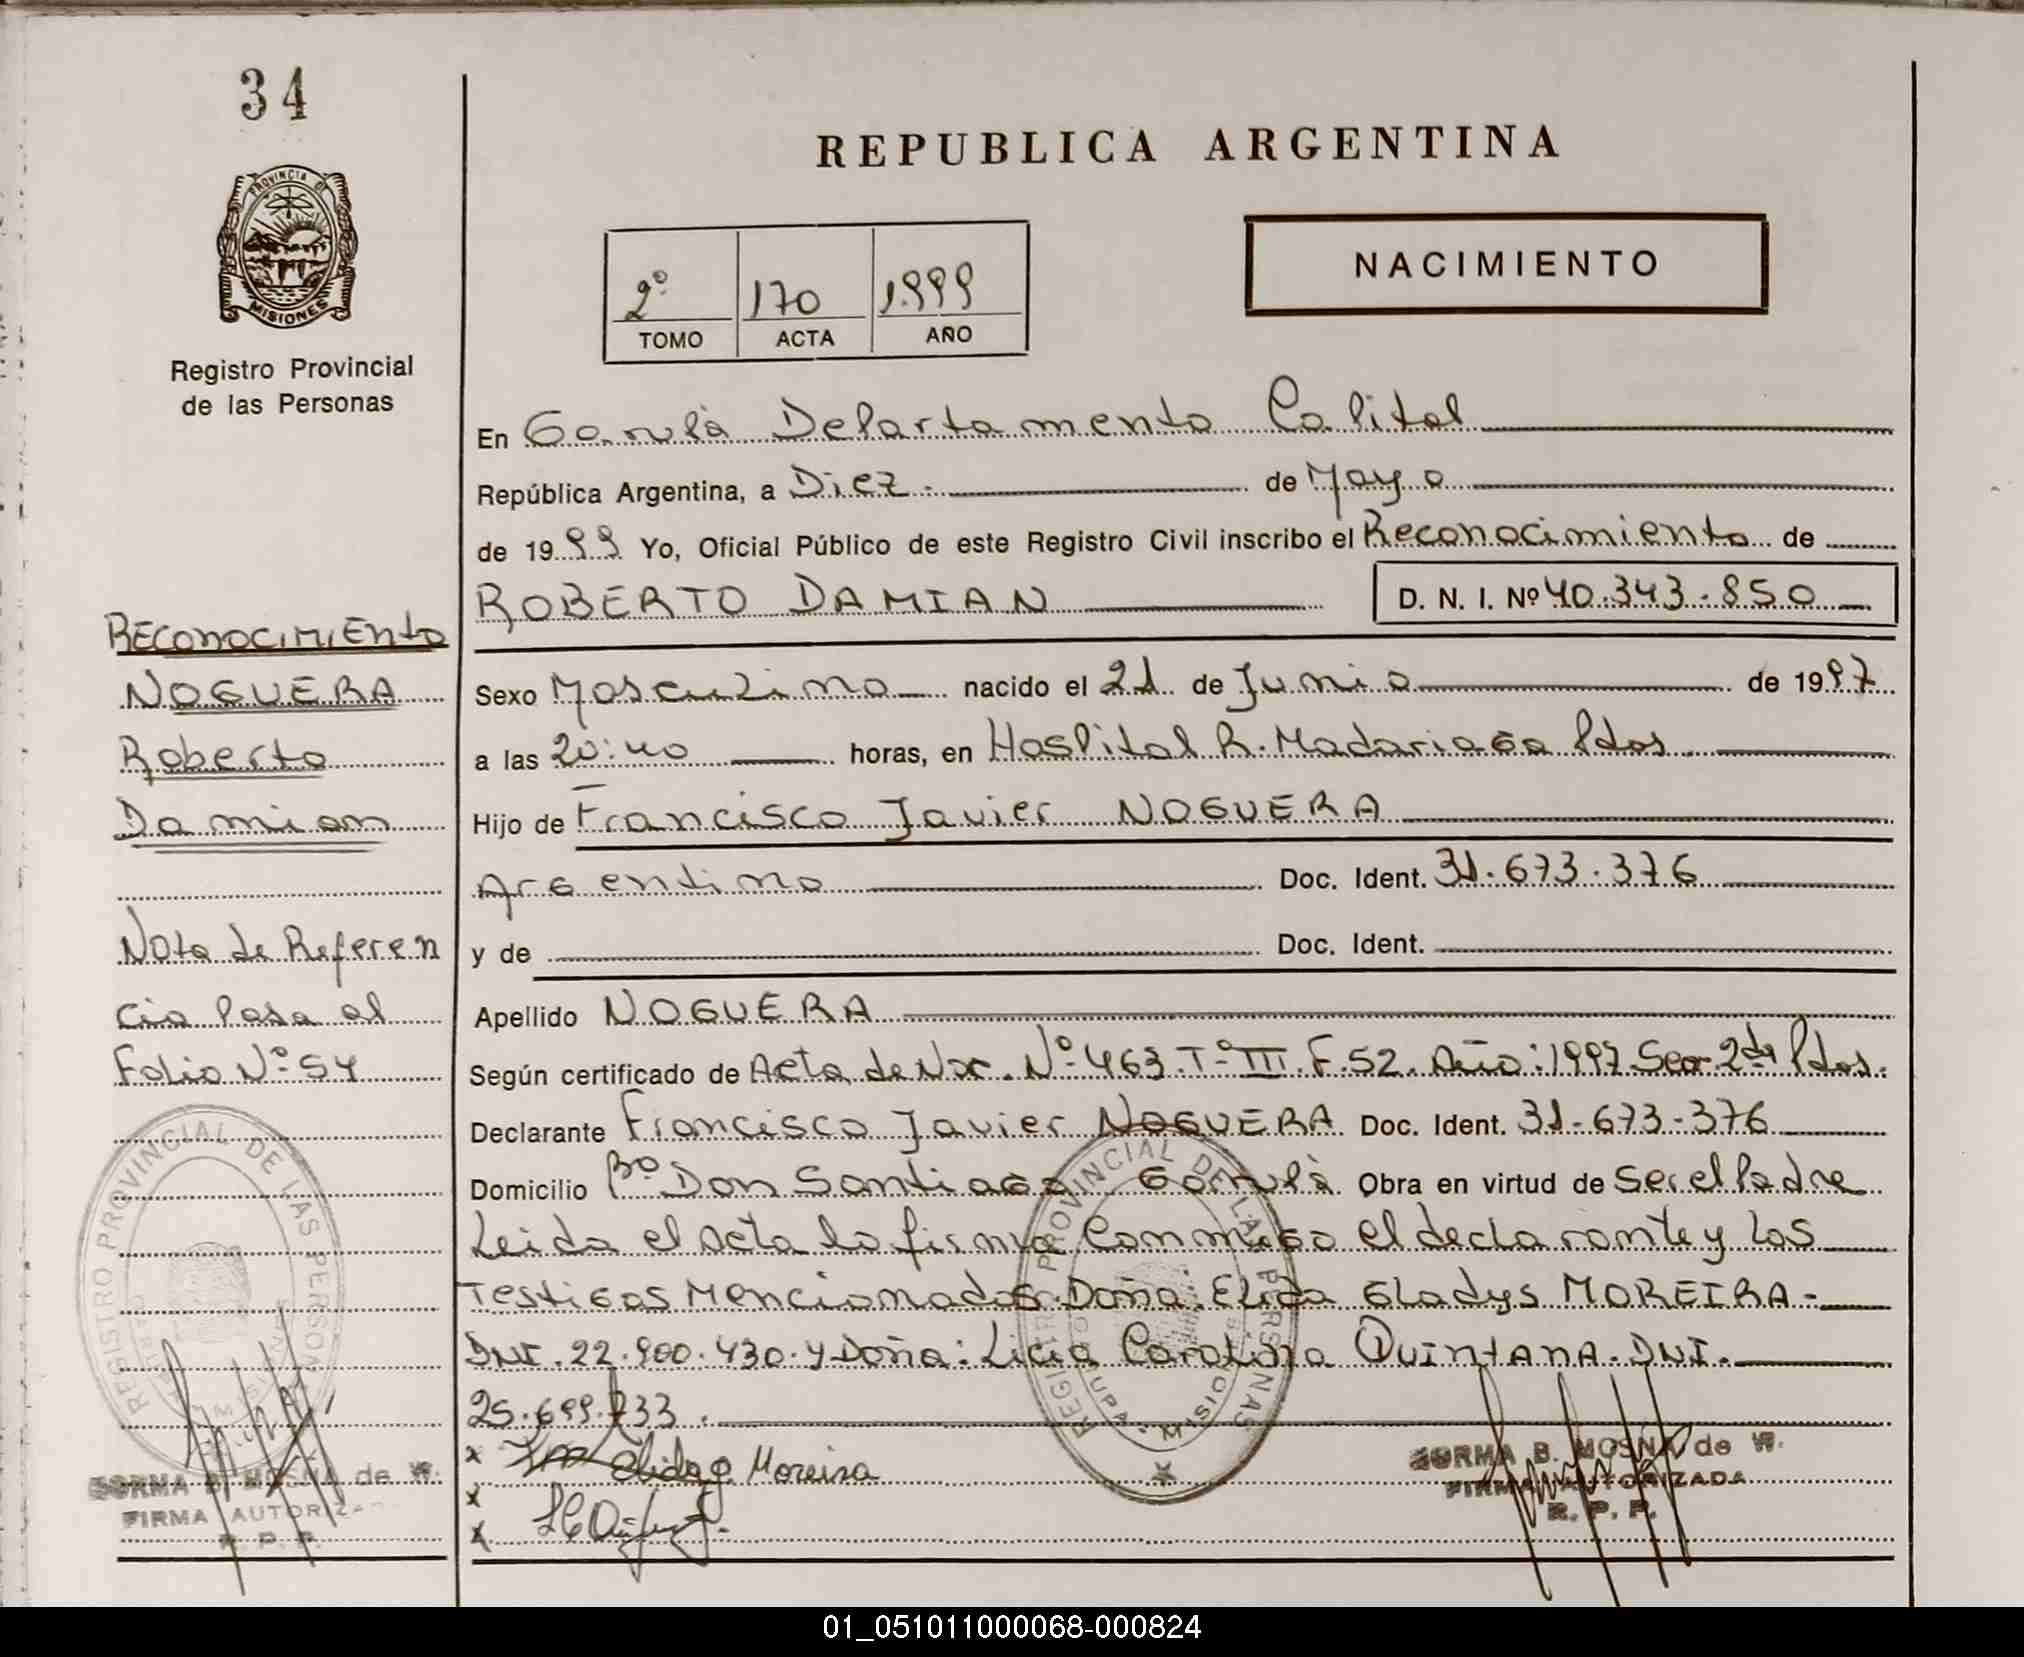 34
PROVINCIA DE
MISIONES
Registro Provincial
de las Personas
RECONOCIMIENTO
NOGUERA
Roberto
Damian
Nota de Referen
cia Pasa al
Folio Nº 54
REGISTRO PROVINCIAL DE LAS PERSONAS
NORMA B. MOSNA de W.
FIRMA AUTORIZADA
R. P. P.
REPUBLICA ARGENTINA
NACIMIENTO
2º 170 1.999
TOMO ACTA AÑO
En Garupá Departamento Capital
República Argentina, a Diez.- de Mayo
de 1999 Yo, Oficial Público de este Registro Civil inscribo el Reconocimiento de
ROBERTO DAMIAN D. N. I. Nº 40.343.850
Sexo Masculino nacido el 21 de Junio de 1997
a las 20:40 horas, en Hospital R. Madariaga Pdas.
Hijo de Francisco Javier NOGUERA
Argentino Doc. Ident. 31.673.376
y de Doc. Ident.
Apellido NOGUERA
Según certificado de Acta de Nac. Nº 463. Tº III. F. 52. Año: 1997 Secc. 2da Pdas.
Declarante Francisco Javier NOGUERA Doc. Ident. 31.673-376
Domicilio Bº Don Santiago Garupá Obra en virtud de Ser el Padre
Leida el acta la firma Conmigo el declarante y Los
Testigos Mencionados. Doña: Elida Gladys MOREIRA-
DNI. 22.900.430. y Doña: Licia Carolina QUINTANA. DNI.
25.699.733.
x Elida G Moreira
x
x
REGISTRO PROVINCIAL DE LAS PERSONAS
GARUPA - MISIONES
NORMA B. MOSNA de W.
FIRMA AUTORIZADA
R. P. P.
01_051011000068-000824